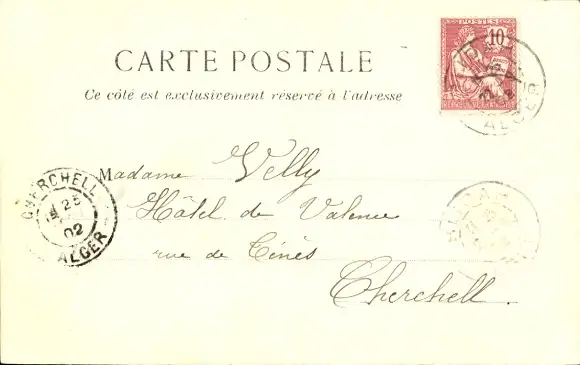 POSTES
10
CARTE POSTALE
Ce côté est exclusivement réservé à l'adresse
ALGER
Madame Velly
Hôtel de Valence
rue de Ténès
Cherchell.
CHERCHELL
25
02
ALGER